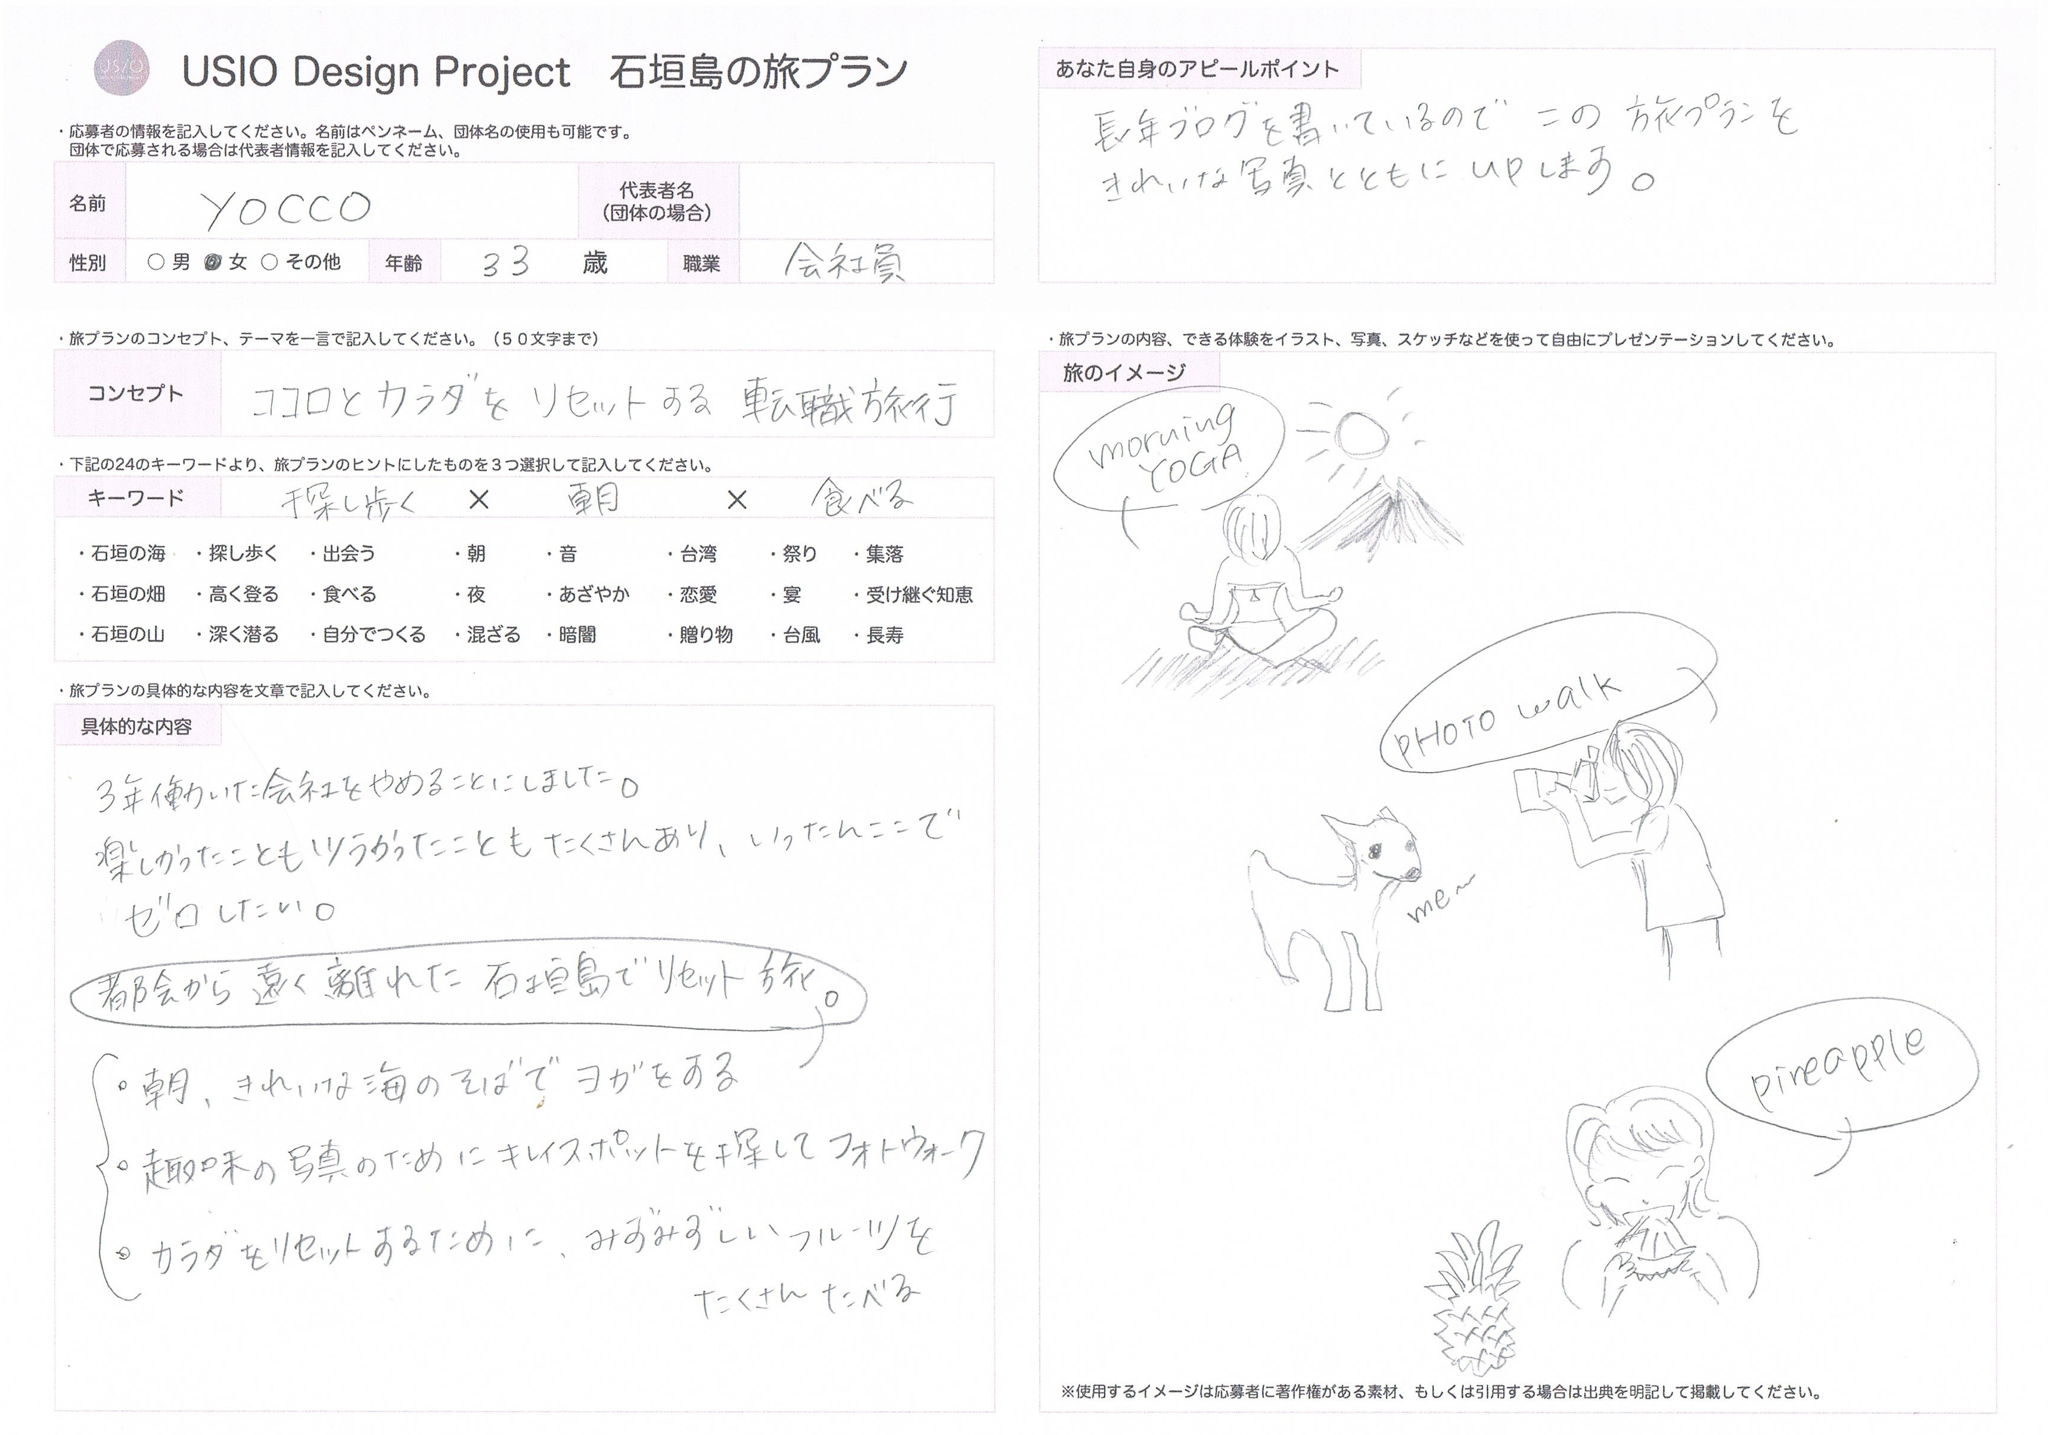 USIO
USIO Design Project 石垣島の旅プラン
・応募者の情報を記入してください。名前はペンネーム、団体名の使用も可能です。
団体で応募される場合は代表者情報を記入してください。
名前 YOCCO 代表者名
(団体の場合)
性別 ○ 男 ● 女 ○ その他 年齢 33 歳 職業 会社員
・旅プランのコンセプト、テーマを一言で記入してください。（５０文字まで）
コンセプト ココロとカラダをリセットする 転職旅行
・下記の24のキーワードより、旅プランのヒントにしたものを３つ選択して記入してください。
キーワード 探し歩く × 朝 × 食べる
・石垣の海 ・探し歩く ・出会う ・朝 ・音 ・台湾 ・祭り ・集落
・石垣の畑 ・高く登る ・食べる ・夜 ・あざやか ・恋愛 ・宴 ・受け継ぐ知恵
・石垣の山 ・深く潜る ・自分でつくる ・混ざる ・暗闇 ・贈り物 ・台風 ・長寿
・旅プランの具体的な内容を文章で記入してください。
具体的な内容
3年働いた会社をやめることにしました。
楽しかったこともツラかったこともたくさんあり、いったんここで
ゼロしたい。
都会から遠く離れた石垣島でリセット旅。
。朝、きれいな海のそばでヨガをする
。趣味の写真のためにキレイスポットを探してフォトウォーク
。カラダをリセットするために、みずみずしいフルーツを
たくさんたべる
あなた自身のアピールポイント
長年ブログを書いているのでこの旅プランを
きれいな写真とともにupします。
・旅プランの内容、できる体験をイラスト、写真、スケッチなどを使って自由にプレゼンテーションしてください。
旅のイメージ
morning
YOGA
pHOTO walk
me〜
pineapple
※使用するイメージは応募者に著作権がある素材、もしくは引用する場合は出典を明記して掲載してください。